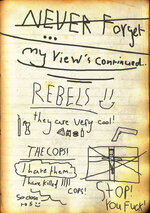 NEVER Forget
...
my view's continued...
REBELS
they are very cool!
THE COPS!
I hate them.
I have killed IIII
COPS!
STOP!
You Fuck!